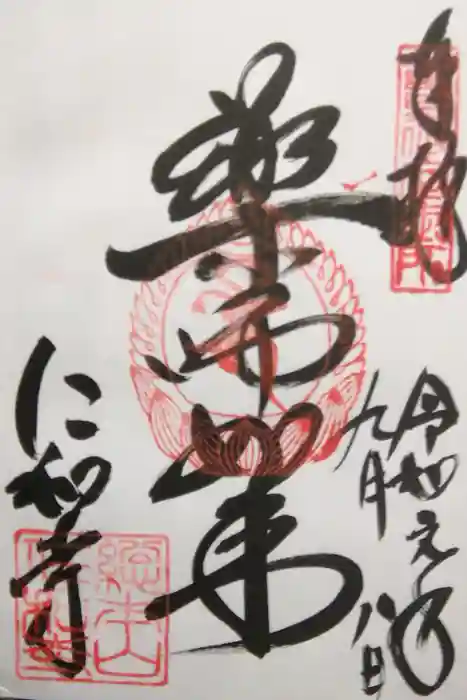 奉拝
令和元年
九月八日
薬師如来
仁和寺